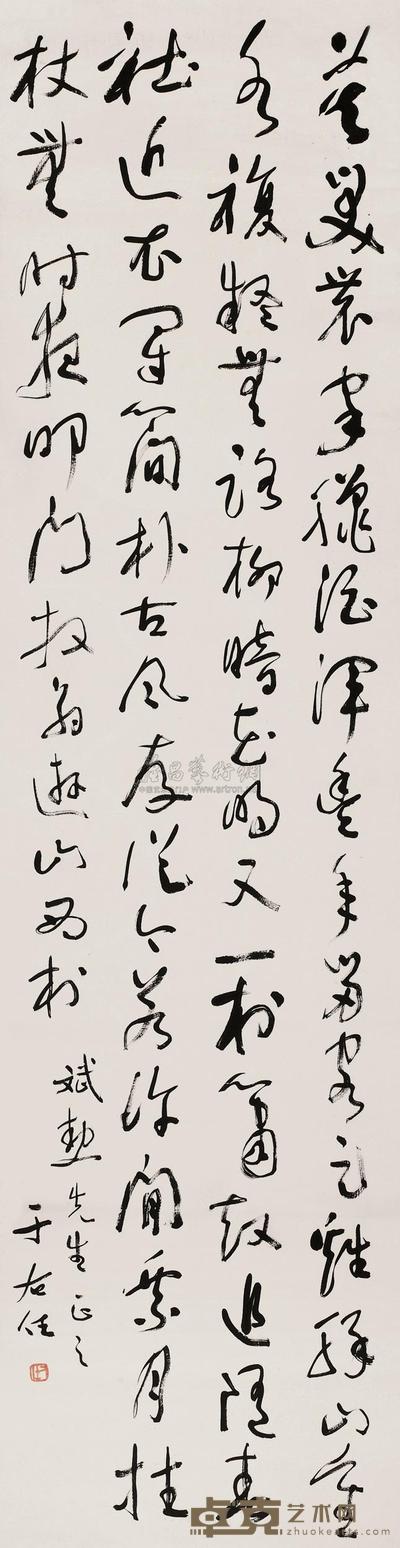 莫笑農家臘酒渾豐年留客足雞豚山重
水複疑無路柳暗花明又一村簫鼓追隨春
社近衣冠簡朴古風存從今若許閒乘月拄
杖無時夜叩門放翁遊山西村
斌勲先生正之
于右任
雅昌藝術網
www.artron.net
卓克艺术网
zhuokearts.com